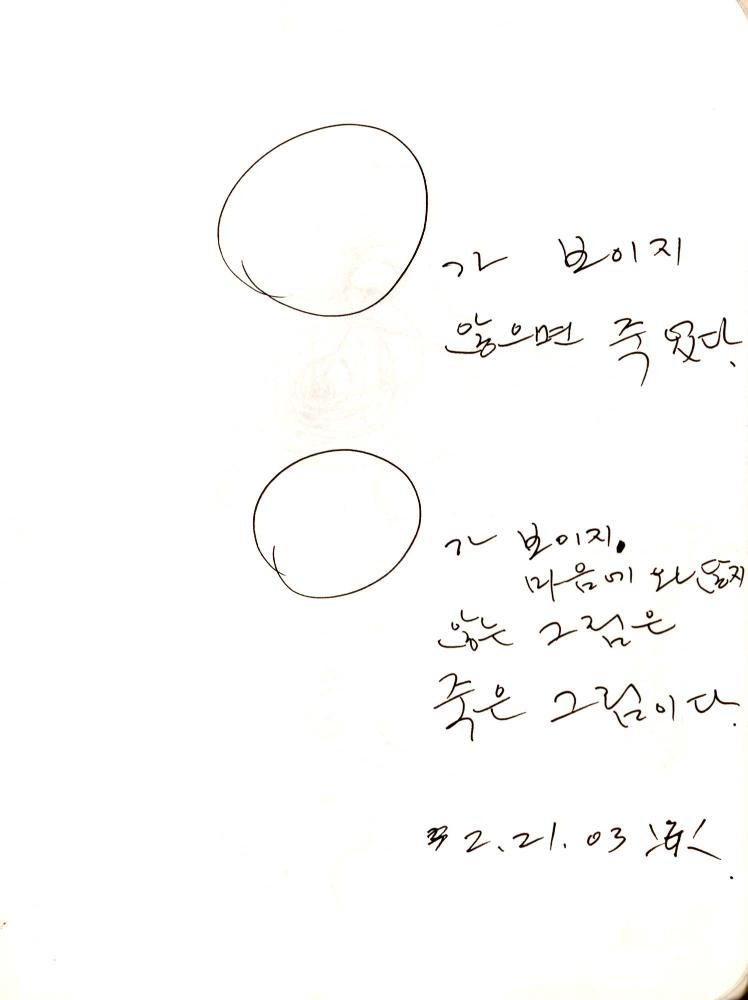 가 보이지
않으면 죽었다.
가 보이지.
마음에 와 닿지
않는 그림은
죽은 그림이다.
2.21.03